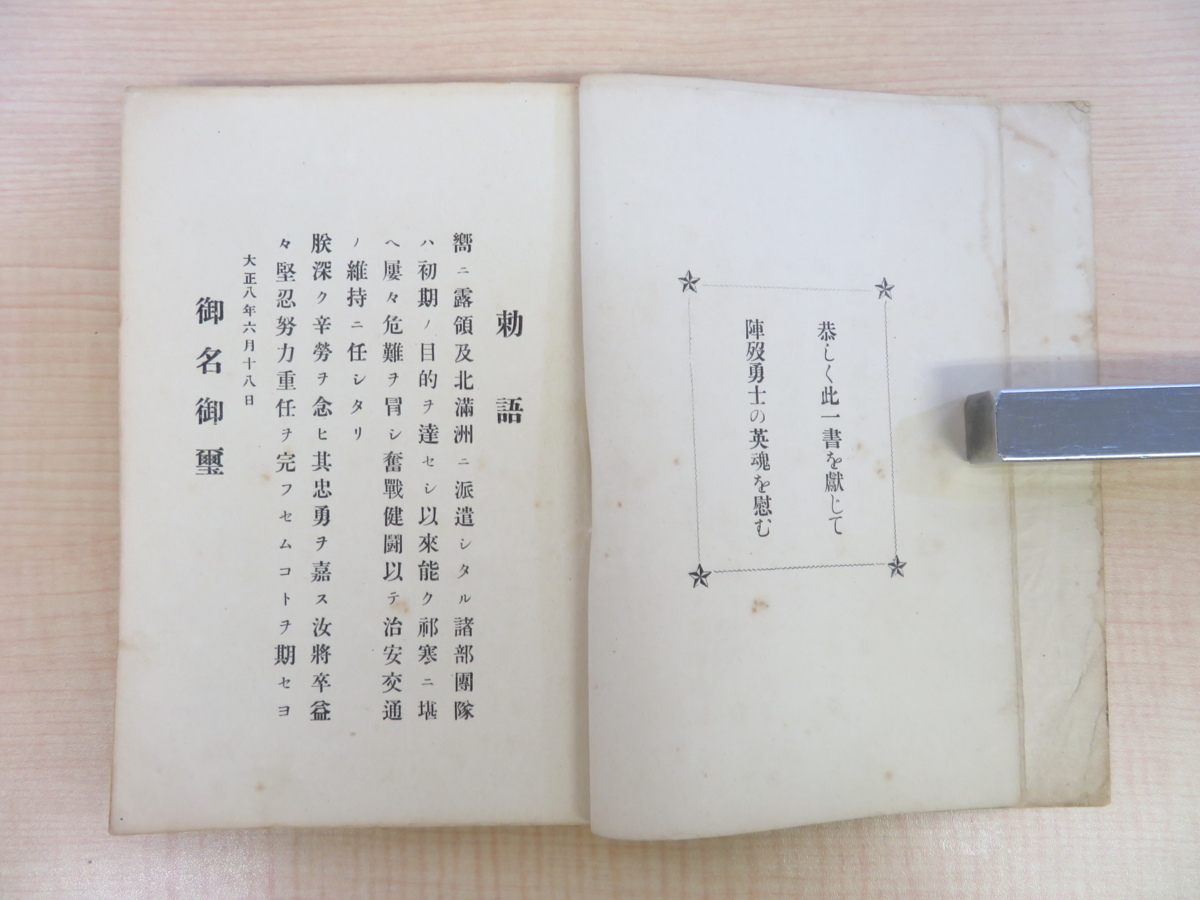 恭しく此一書を獻じて
陣歿勇士の英魂を慰む
勅語
嚮ニ露領及北滿洲ニ派遣シタル諸部團隊
ハ初期ノ目的ヲ達セシ以來能ク祁寒ニ堪
ヘ屢々危難ヲ冒シ奮戰健鬪以テ治安交通
ノ維持ニ任シタリ
朕深ク辛勞ヲ念ヒ其忠勇ヲ嘉ス汝將卒益
々堅忍努力重任ヲ完フセムコトヲ期セヨ
大正八年六月十八日
御名御璽